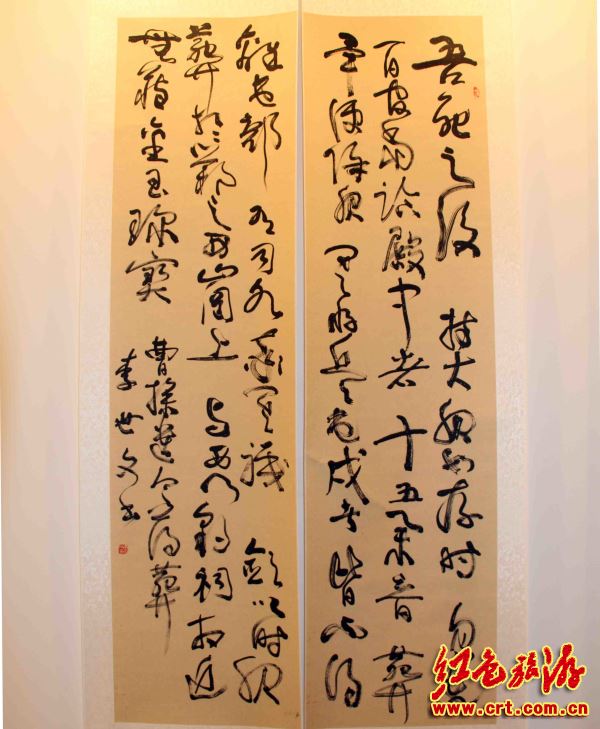 吾死之後 持大服如存时 勿遗
百官當临殿中者 十五举音 葬
毕便除服 其将兵屯戍者 皆不得
離屯部 有司各率乃職 斂以时服
葬於邺之西山岡上 与西门豹祠相近
無藏金玉珍寶 曹操遗令 葬
李世文书
红色旅游
www.crt.com.cn